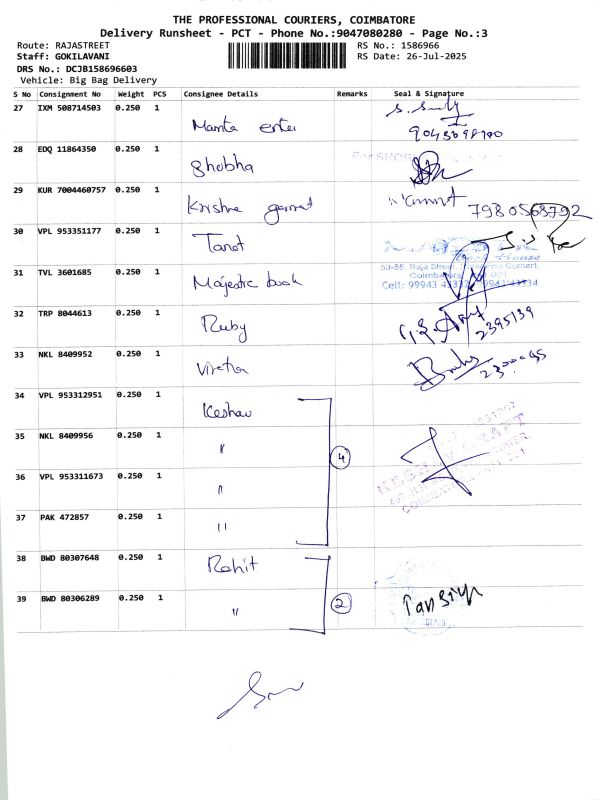 THE PROFESSIONAL COURIERS, COIMBATORE
Delivery Runsheet - PCT - Phone No.:9047080280 - Page No.:3
Route: RAJASTREET
Staff: GOKILAVANI
DRS No.: DCJB158696603
Vehicle: Big Bag Delivery
RS No.: 1586966
RS Date: 26-Jul-2025
S No Consignment No Weight PCS Consignee Details Remarks Seal & Signature
27 IXM 508714503 0.250 1 Mamta enter
28 EDQ 11864350 0.250 1 Shobha
29 KUR 7004460757 0.250 1 Krishna garment 7980568792
30 VPL 953351177 0.250 1 Tanot
31 TVL 3601685 0.250 1 Majestic book
53-55, Raja Street,
Coimbatore 001
Cell: 99943
32 TRP 8044613 0.250 1 Ruby 2395139
33 NKL 8409952 0.250 1
34 VPL 953312951 0.250 1 Keshav
35 NKL 8409956 0.250 1 "
4
36 VPL 953311673 0.250 1 "
37 PAK 472857 0.250 1 "
38 BWD 80307648 0.250 1 Rohit
39 BWD 80306289 0.250 1 "
2